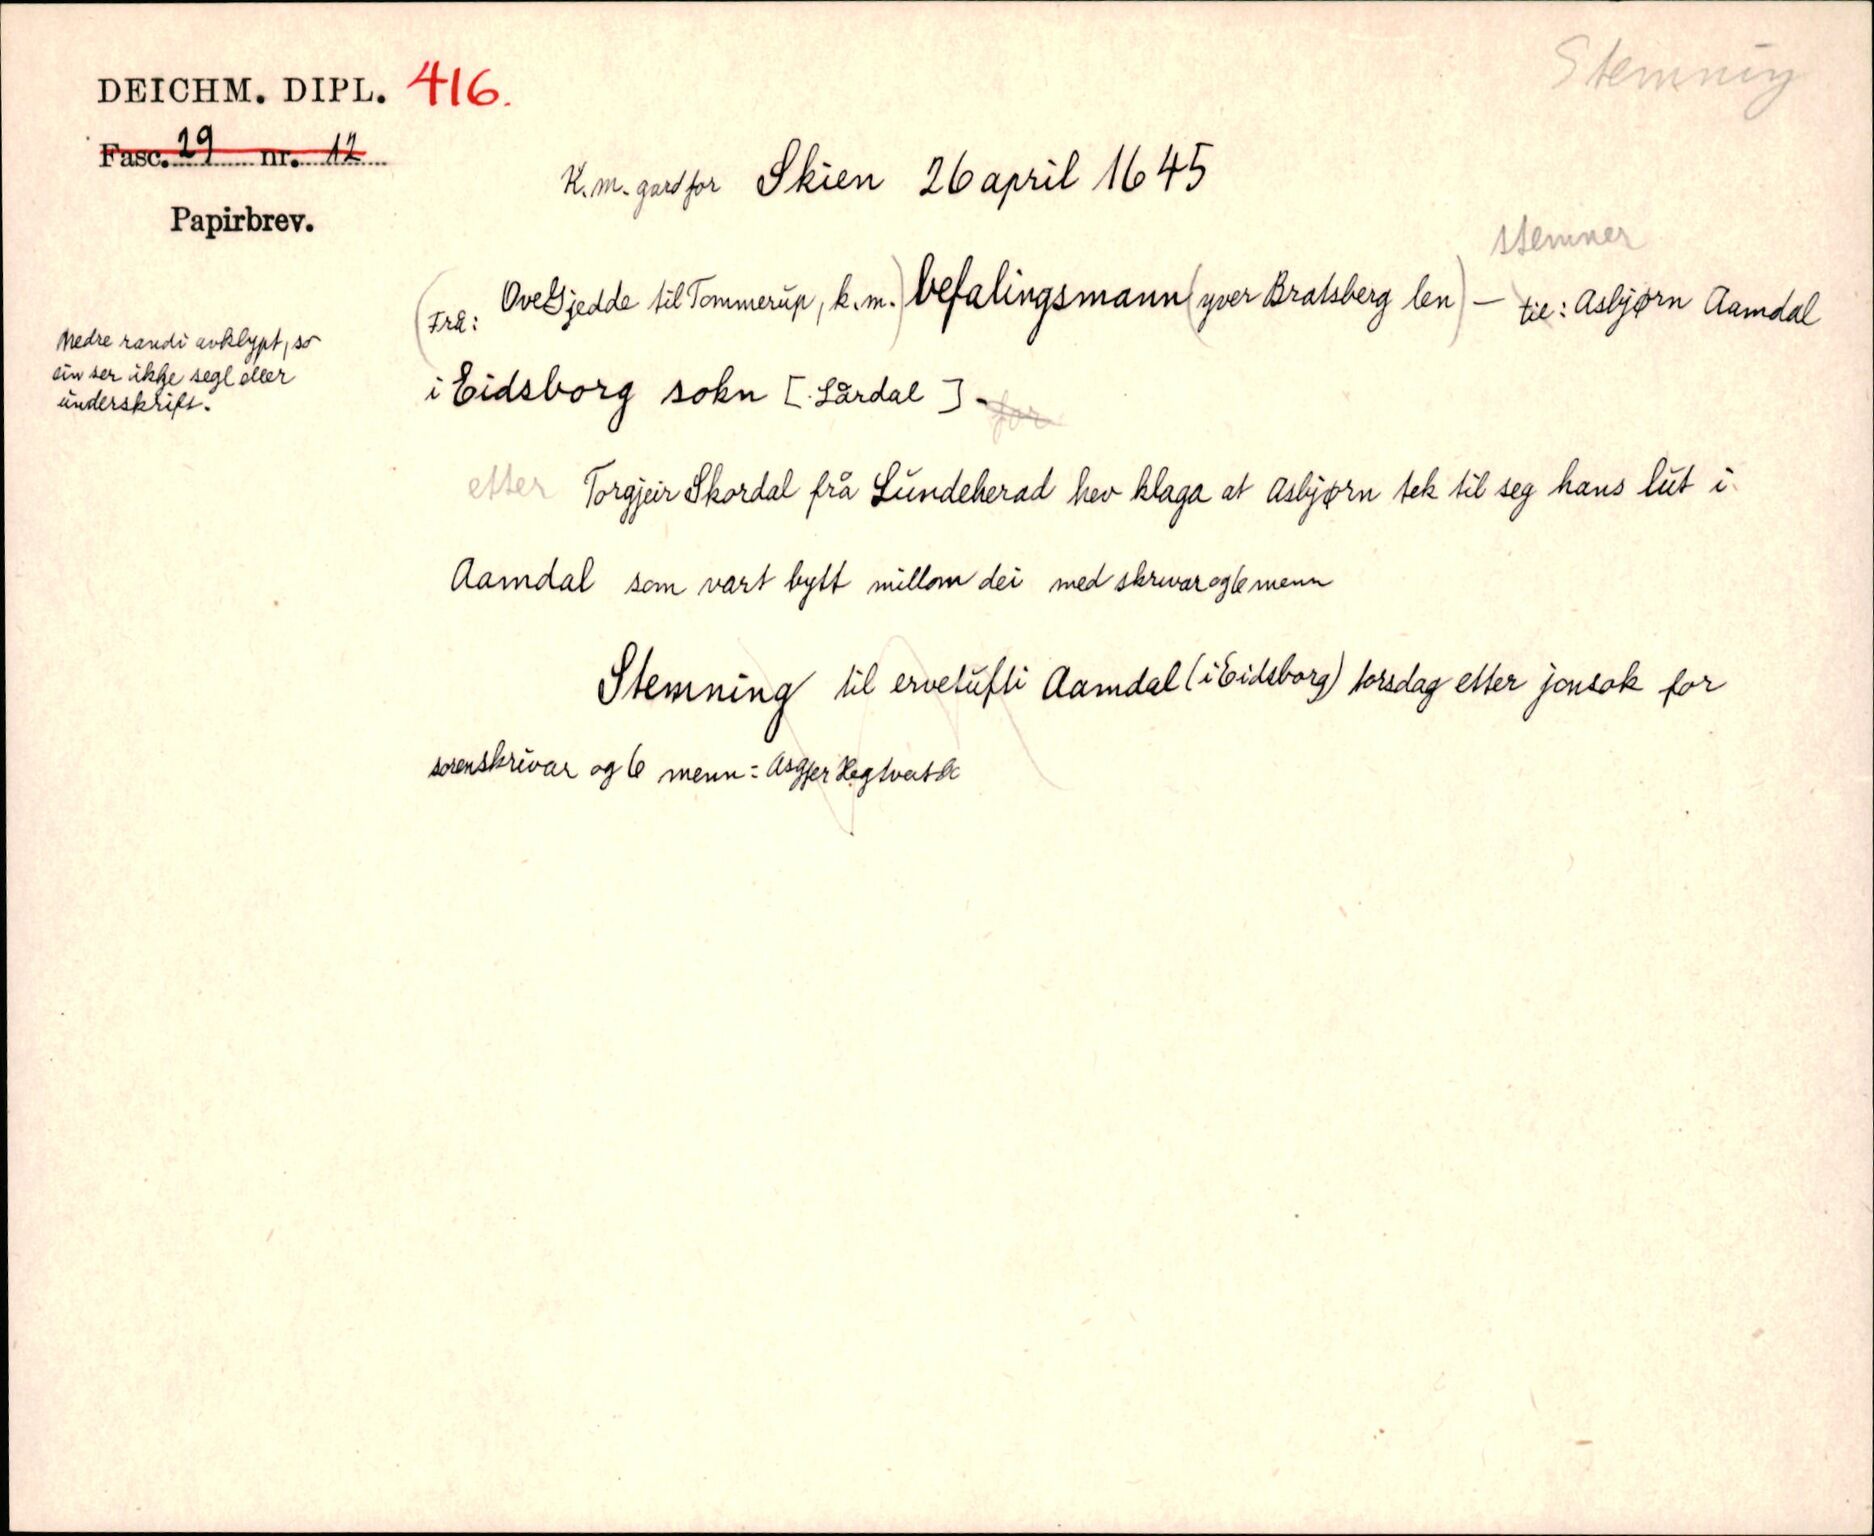 Stemning
DEICHM. DIPL. 416.
Fasc. 29 nr. 12
Papirbrev.
K.m. gard for Skien 26 april 1645
stemner
(Frå: Ove Gjedde til Tommerup, k.m.) befalingsmann (yver Bratsberg len) — til: Asbjørn Aamdal
i Eidsborg sokn [Lårdal] - for
Nedre randi avklypt, so
ein ser ikkje segl eller
underskrift.
etter Torgjeir Skordal frå Lundeherad hev klaga at Asbjørn tek til seg hans lut i
Aamdal som vart bytt millom dei med skrivar og 6 menn
Stemning til ervetufti Aamdal (i Eidsborg) torsdag etter jonsok for
sorenskrivar og 6 menn: Asgjer